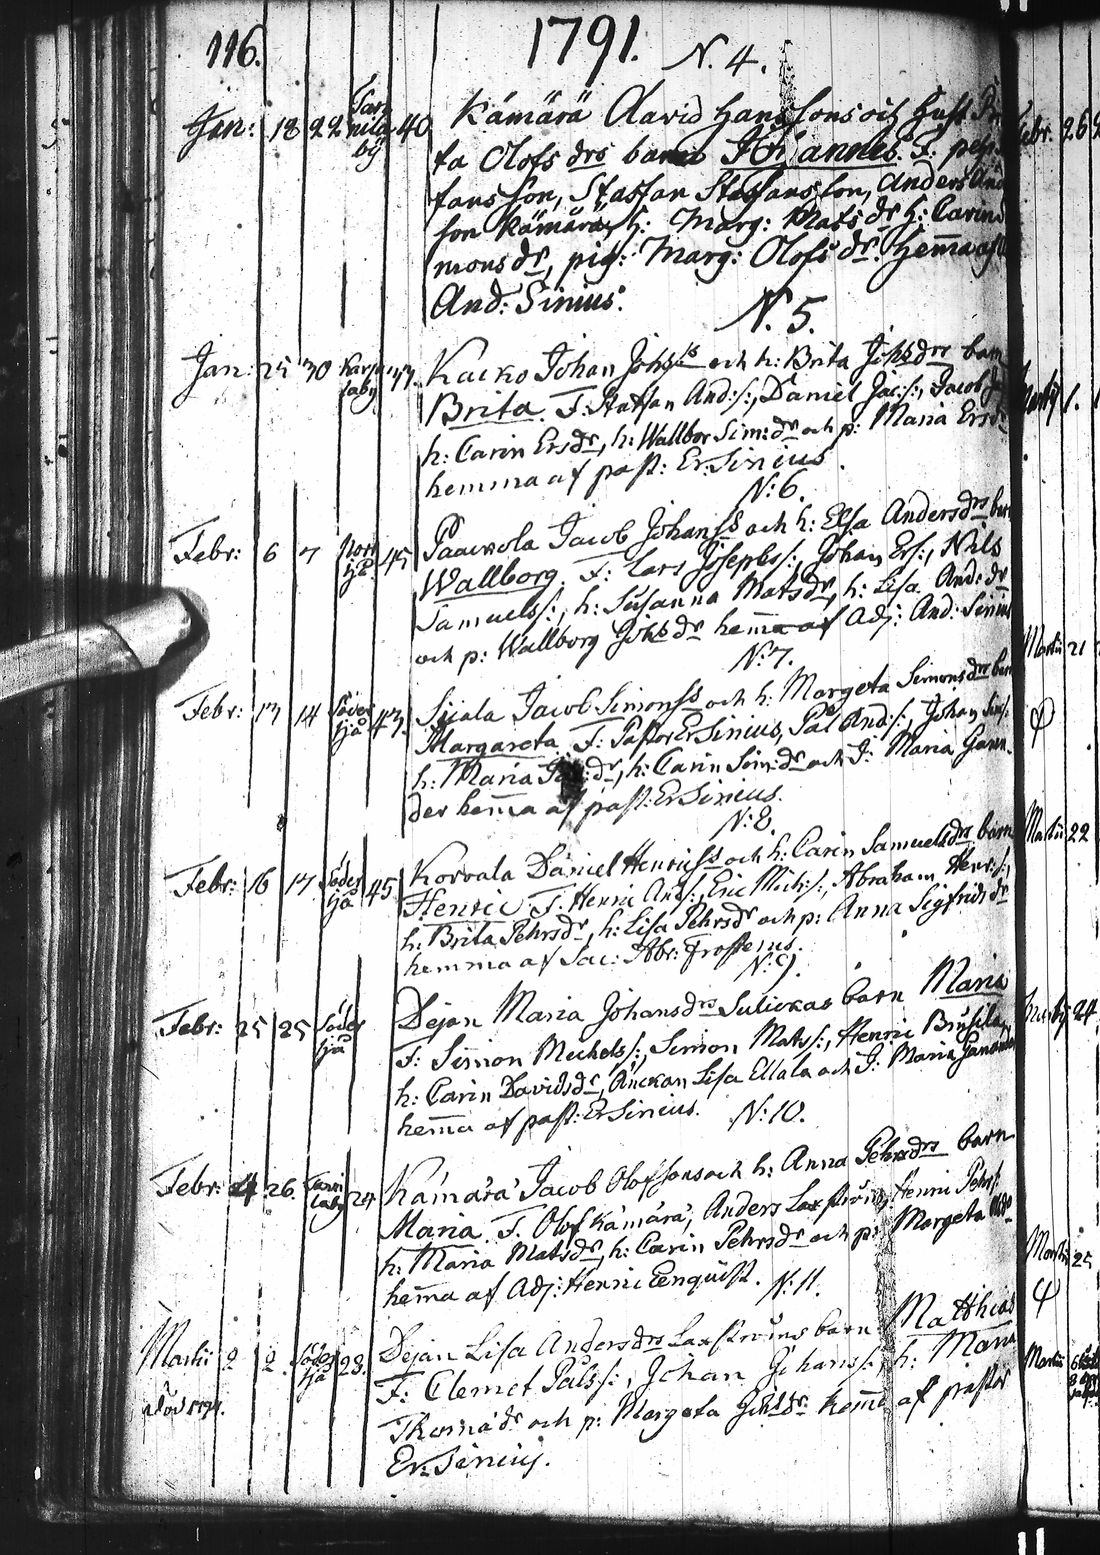 116.
1791.
N. 4.
Jan: 18 22 40 Kämärä David Hanssons och Hust
ta Olofs drs barn Johannes. F:
fans son, Staffan Staffans son, Anders And
son Kämärä, H: Marg: Mats dr H: Carin
mons dr, pig: Marg: Olofs dr. hemma af
And: Sinius.
N. 5.
Jan: 25 30 Karp laby 43. Kacko Johan Johss och h: Brita Johsdrs barn
Brita. F: Staffan And:s:, Daniel Jac:s:, Jacob
h: Carin Ersdr, h: Wallbor Sim:dr och p: Maria Ersdr
hemma af past: Er: Sinius.
N: 6.
Febr: 6 7 Norr sjä 45 Paavola Jacob Johanss och h: Elsa Andersdrs barn
Wallborg. F: Lars Josephs:, Johan Ers:, Nils
Samuels:, h: Susanna Matsdr, h: Lisa And:dr
och p: Wallborg Johsdr hem̄a af Adj: And: Sinius
N: 7.
Febr: 13 14 Söder sjä 43. Simonss och h: Margeta Simonsdrs barn
Margareta. F: Pastor Er Sinius, Pål And:s:, Johan Sim:s:
h: Maria dr, h: Carin Sim:dr och J: Maria Gann
der hem̄a af past: Er Sinius.
N: 8.
Febr: 16 17 Söder sjä 45 Korvala Daniel Henricss och h: Carin Samuelsdrs barn
Henric. F: Henric And:s:, Eric Mich:s:, Abraham Henr:s:,
h: Brita Pehrsdr, h: Lisa Pehrsdr och p: Anna Sigfridsdr
hemma af Sac: Abr: Frosterus.
N: 9.
Febr: 25 25 Söder sjä Dejan Maria Johansdrs Sulickas barn Maria
F: Simon Michels:, Simon Mats:, Henric Brusila,
h: Carin Davidsdr, Änckan Lisa Ellala och J: Maria Gannder
hem̄a af past: Er Sinius. N: 10.
Febr: 24 26. laby 24 Kämärä Jacob Olofssons och h: Anna Pehrsdrs barn
Maria. F. Olof Kämärä, Anders Laxström, Henric Pehrs:
h: Maria Matsdr, h: Carin Pehrsdr och p: Margeta
hem̄a af Adj: Henric Eenquist. N: 11.
Martii 2 2 Söder sjä 28. Dejan Lisa Andersdrs Laxströms barn Matthias
död 1791. F: Clemet Påls:, Johan Johans:, h: Maria
Thomädr och p: Margeta Johsdr hem̄a af pastor
Er: Sinius.
Febr. 26
1.
Martii 21
Martii 22
24
Martii 25
Martii